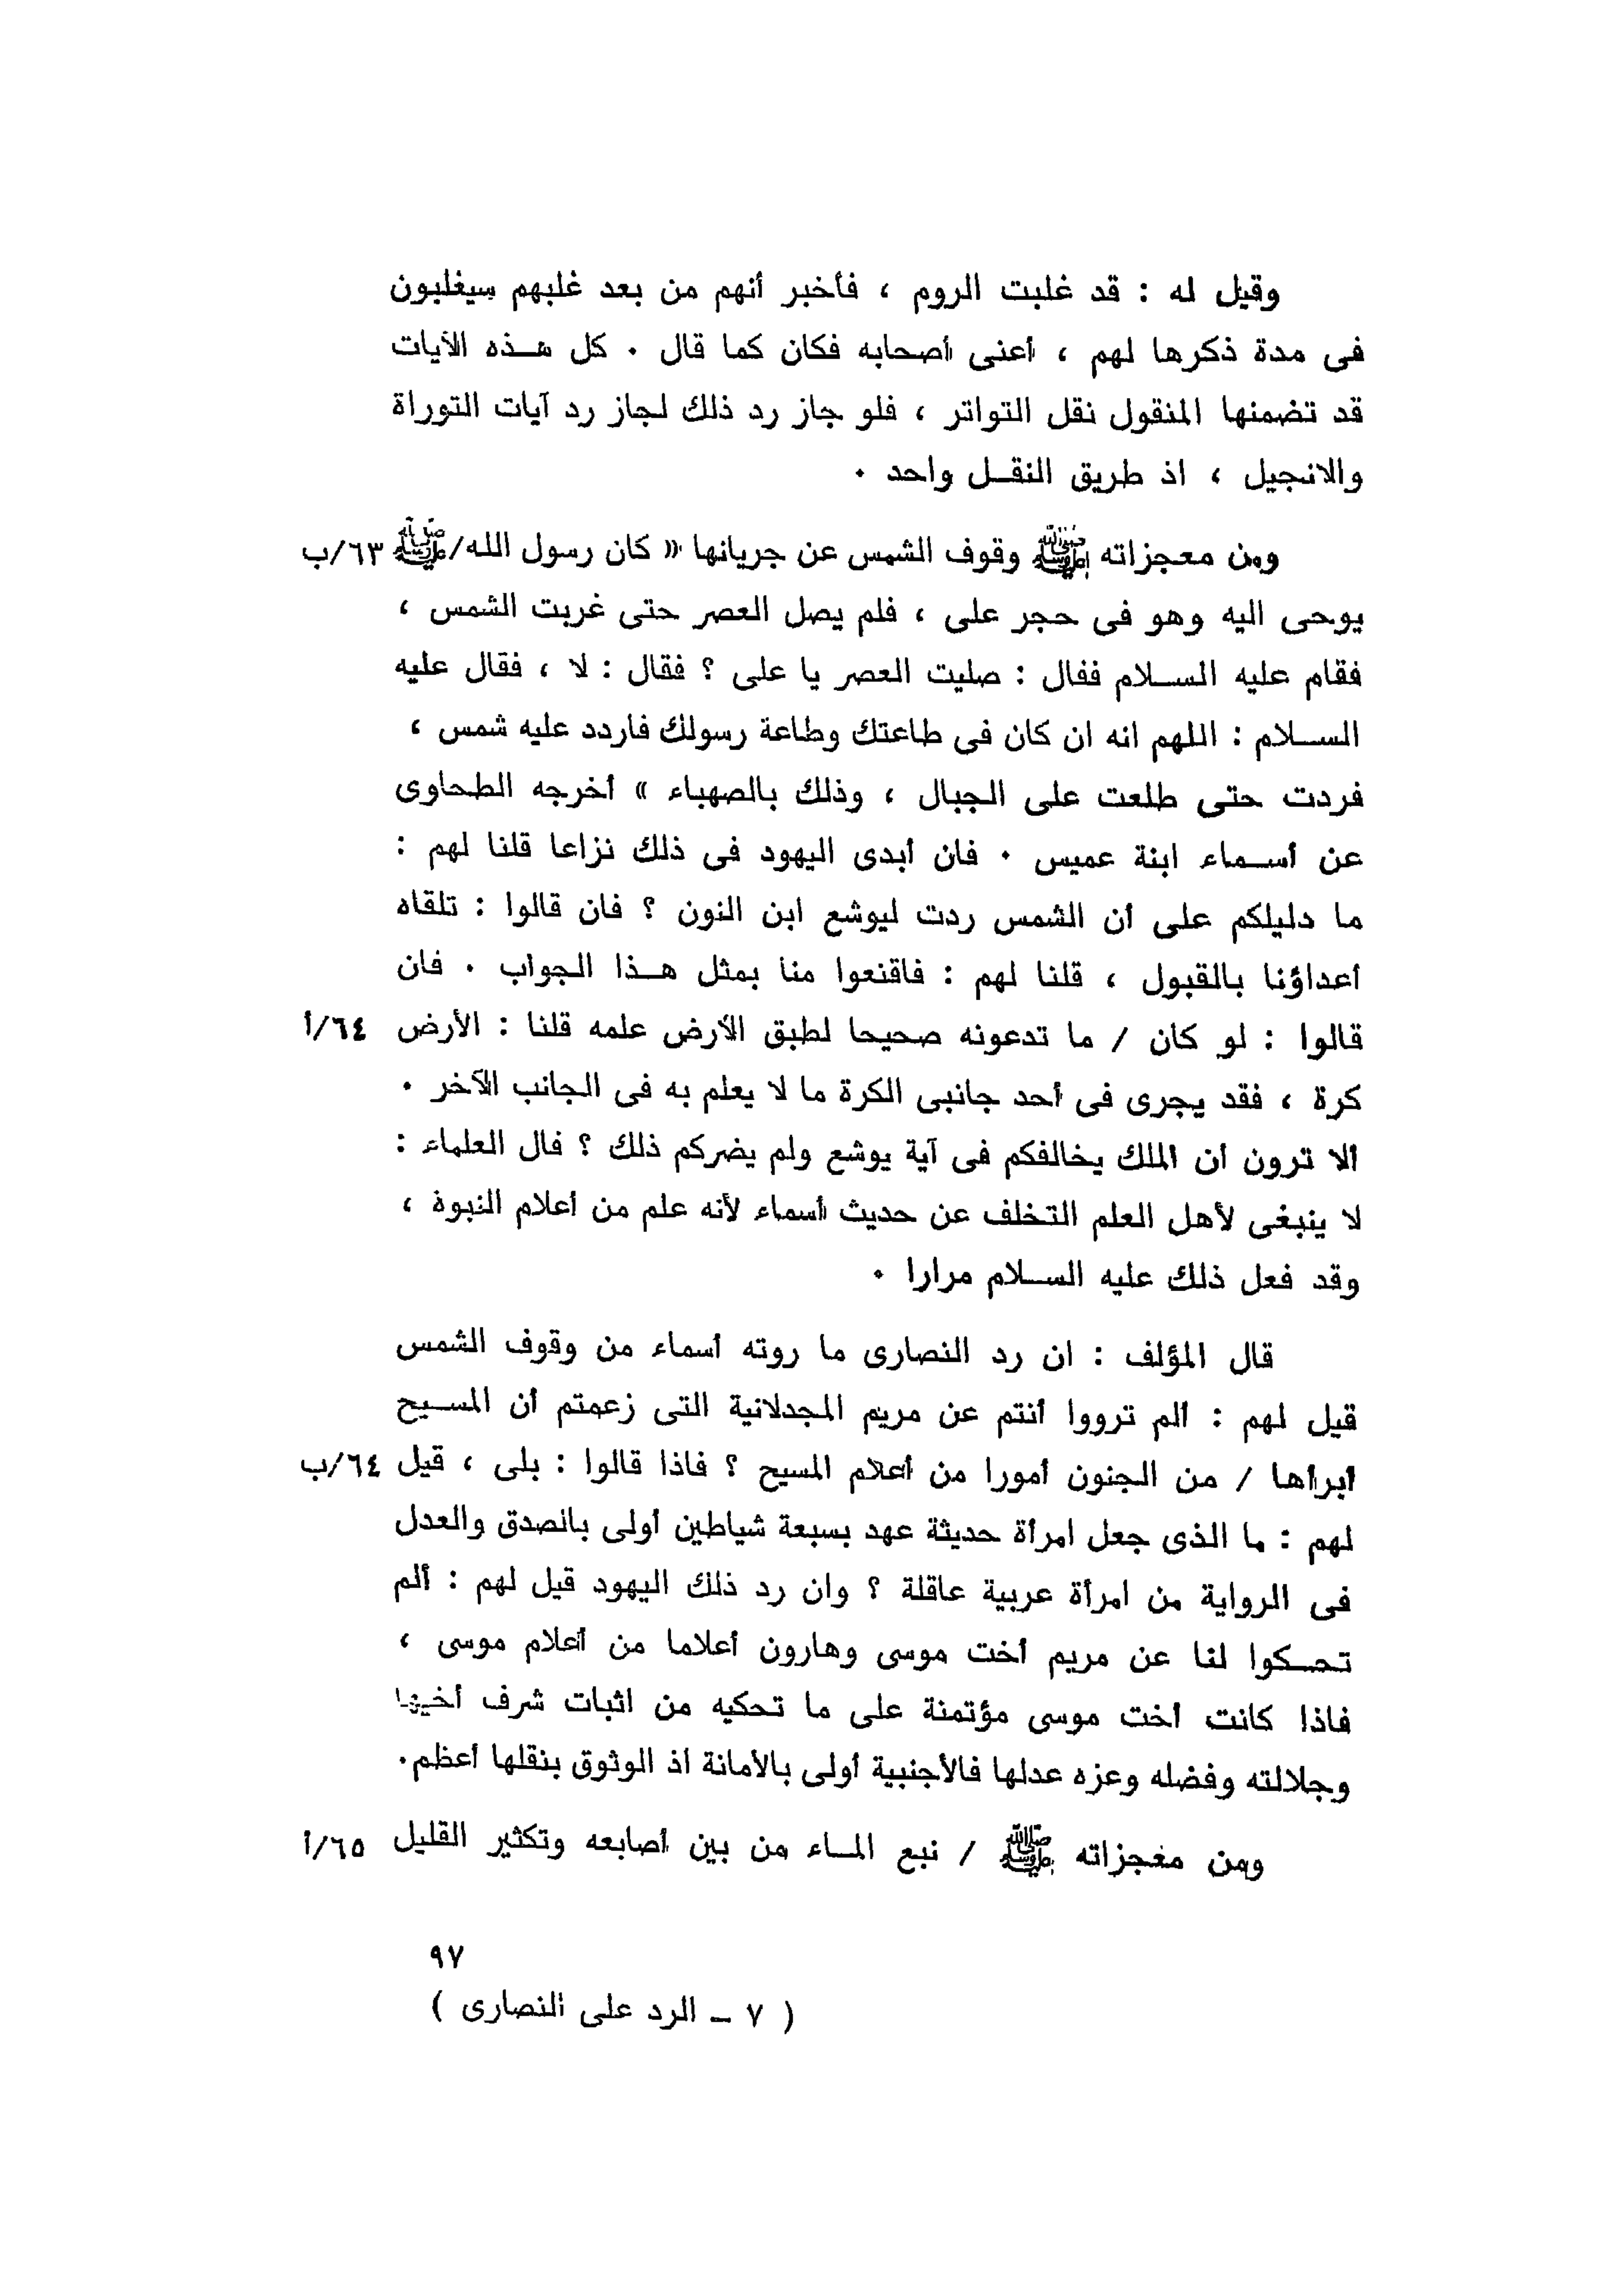 وقيل له : قد غلبت الروم ، فأخبر أنهم من بعد غلبهم سيغلبون
فى مدة ذكرها لهم ، أعنى أصحابه فكان كما قال . كل هـذه الآيات
قد تضمنها المنقول نقل التواتر ، فلو جاز رد ذلك لجاز رد آيات التوراة
والانجيل ، اذ طريق النقـل واحد .
ومن معجزاته ﷺ وقوف الشمس عن جريانها « كان رسول الله/ﷺ ٦٣/ب
يوحى اليه وهو فى حجر على ، فلم يصل العصر حتى غربت الشمس ،
فقام عليه السـلام فقال : صليت العصر يا على ؟ فقال : لا ، فقال عليه
السـلام : اللهم انه ان كان فى طاعتك وطاعة رسولك فاردد عليه شمس ،
فردت حتى طلعت على الجبال ، وذلك بالصهباء » أخرجه الطحاوى
عن أسـماء ابنة عميس . فان أبدى اليهود فى ذلك نزاعا قلنا لهم :
ما دليلكم على أن الشمس ردت ليوشع ابن النون ؟ فان قالوا : تلقاه
أعداؤنا بالقبول ، قلنا لهم : فاقنعوا منا بمثل هـذا الجواب . فان
قالوا : لو كان / ما تدعونه صحيحا لطبق الأرض علمه قلنا : الأرض ٦٤/أ
كرة ، فقد يجرى فى أحد جانبى الكرة ما لا يعلم به فى الجانب الآخر .
ألا ترون أن الملك يخالفكم فى آية يوشع ولم يضركم ذلك ؟ قال العلماء :
لا ينبغى لأهل العلم التخلف عن حديث أسماء لأنه علم من أعلام النبوة ،
وقد فعل ذلك عليه السـلام مرارا .
قال المؤلف : ان رد النصارى ما روته أسماء من وقوف الشمس
قيل لهم : ألم ترووا أنتم عن مريم المجدلانية التى زعمتم أن المسـيح
أبرأها / من الجنون أمورا من أعلام المسيح ؟ فاذا قالوا : بلى ، قيل ٦٤/ب
لهم : ما الذى جعل امرأة حديثة عهد بسبعة شياطين أولى بالصدق والعدل
فى الرواية من امرأة عربية عاقلة ؟ وان رد ذلك اليهود قيل لهم : ألم
تحـكوا لنا عن مريم أخت موسى وهارون أعلاما من أعلام موسى ،
فاذا كانت أخت موسى مؤتمنة على ما تحكيه من اثبات شرف أخيها
وجلالته وفضله وعزه عدلها فالأجنبية أولى بالأمانة اذ الوثوق بنقلها أعظم.
ومن معجزاته ﷺ / نبع المـاء من بين أصابعه وتكثير القليل ٦٥/أ
٩٧
( ٧ – الرد على النصارى )